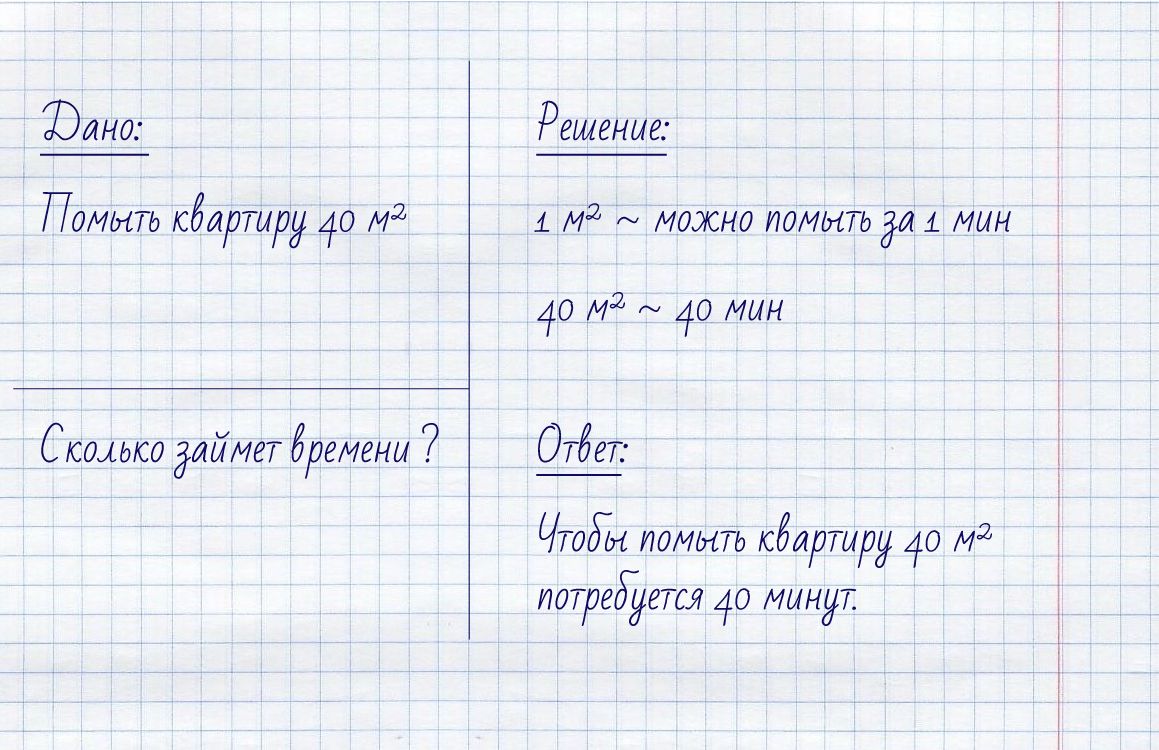 Дано:
Помыть квартиру 40 м²
Сколько займет времени ?
Решение:
1 м² ~ можно помыть за 1 мин
40 м² ~ 40 мин
Ответ:
Чтобы помыть квартиру 40 м²
потребуется 40 минут.